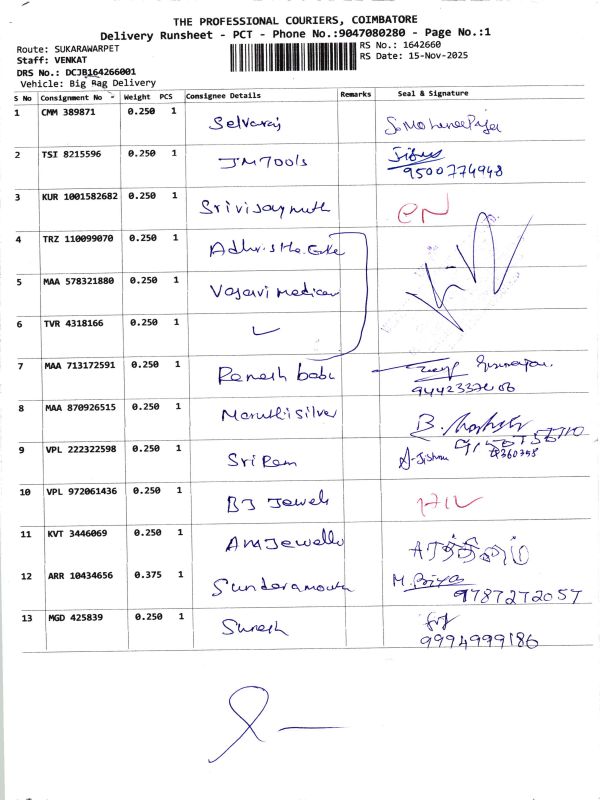 THE PROFESSIONAL COURIERS, COIMBATORE
Delivery Runsheet - PCT - Phone No.:9047080280 - Page No.:1
Route: SUKARAWARPET
RS No.: 1642660
Staff: VENKAT
RS Date: 15-Nov-2025
DRS No.: DCJB164266001
Vehicle: Big Bag Delivery
S No Consignment No Weight PCS Consignee Details Remarks Seal & Signature
1 CMM 389871 0.250 1 Selvaraj
2 TSI 8215596 0.250 1 JM Tools
9500774948
3 KUR 1001582682 0.250 1 Srivijaymuth
4 TRZ 110099070 0.250 1
5 MAA 578321880 0.250 1 Vasavi medicar
6 TVR 4318166 0.250 1
7 MAA 713172591 0.250 1 Ramesh babu
8 MAA 870926515 0.250 1 Maruthi silver
9 VPL 222322598 0.250 1 Sri Ram
10 VPL 972061436 0.250 1 BJ Jewels
11 KVT 3446069 0.250 1 AMJewelle
12 ARR 10434656 0.375 1 Sundaramouth M. Priya
9787272057
13 MGD 425839 0.250 1 Suresh
9994999186